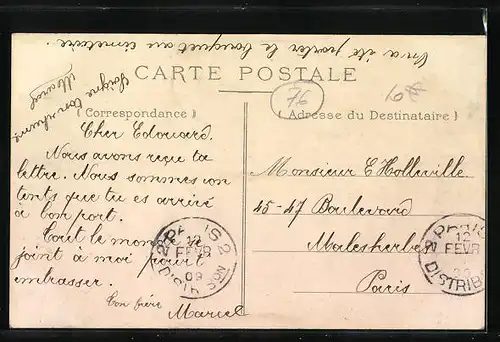 On a été porter le bouquet au cimetière.
Soigne ton rhume
Marcel
CARTE POSTALE
76
(Correspondance)
(Adresse du Destinataire)
Cher Edouard.
Nous avons reçu ta
lettre. Nous sommes con
tents que tu es arrivé
à bon port.
Tout le monde se
joint à moi pour t'
embrasser.
Ton frère
Marcel
Monsieur E Holleville
45-47 Boulevard
Malesherbes
Paris
PARIS 2
12
FEVR
09
DISTRIBUTION
PARIS
12
FEVR
DISTRIB